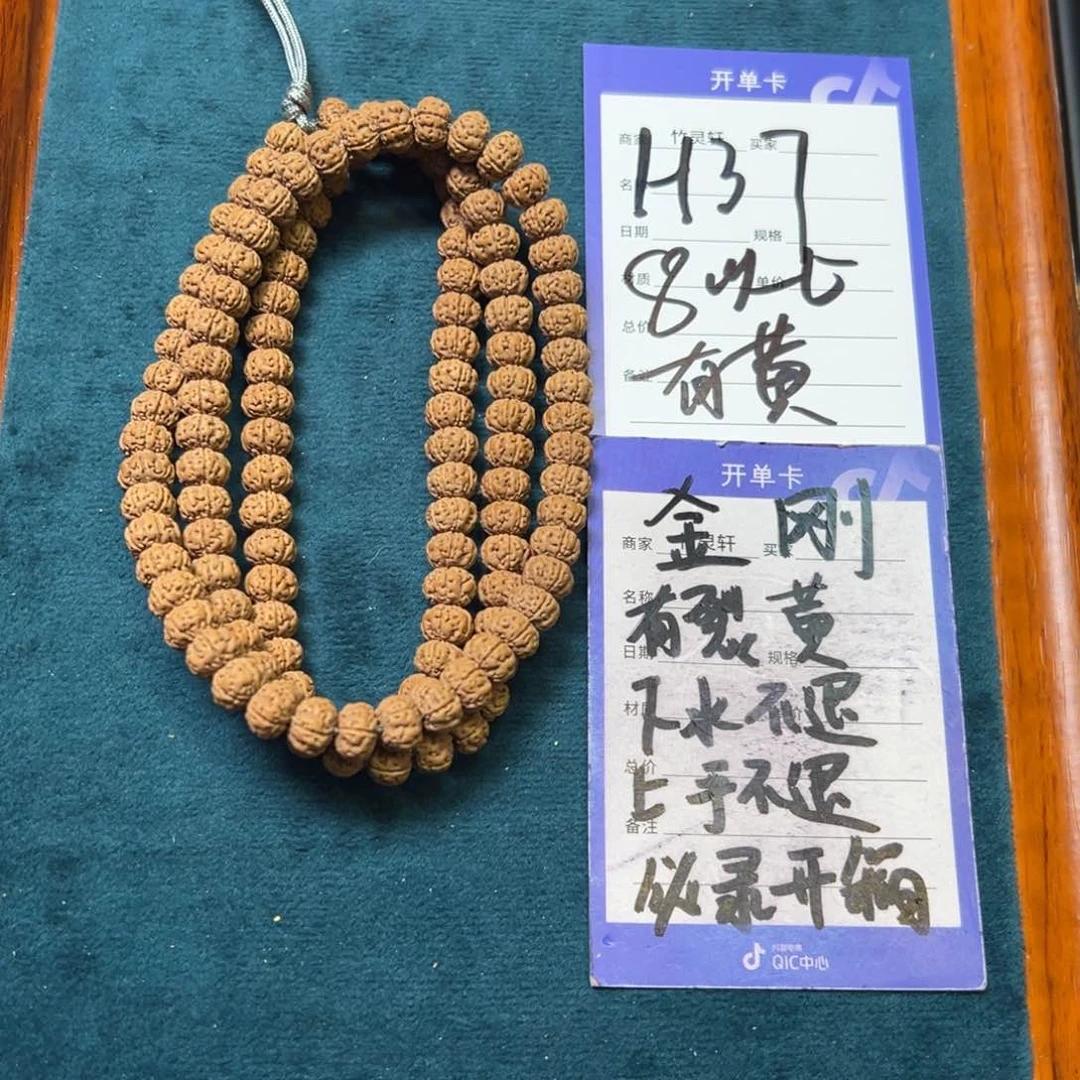 开单卡
商家 竹灵轩 买家
H37
日期 规格
材质 单价
8以七
总价
备注
有黄
开单卡
金刚
商家 竹灵轩 买家
名称
有裂黄
日期 规格
下水不退
总价
上手不退
备注
必录开箱
抖音电商
QIC中心